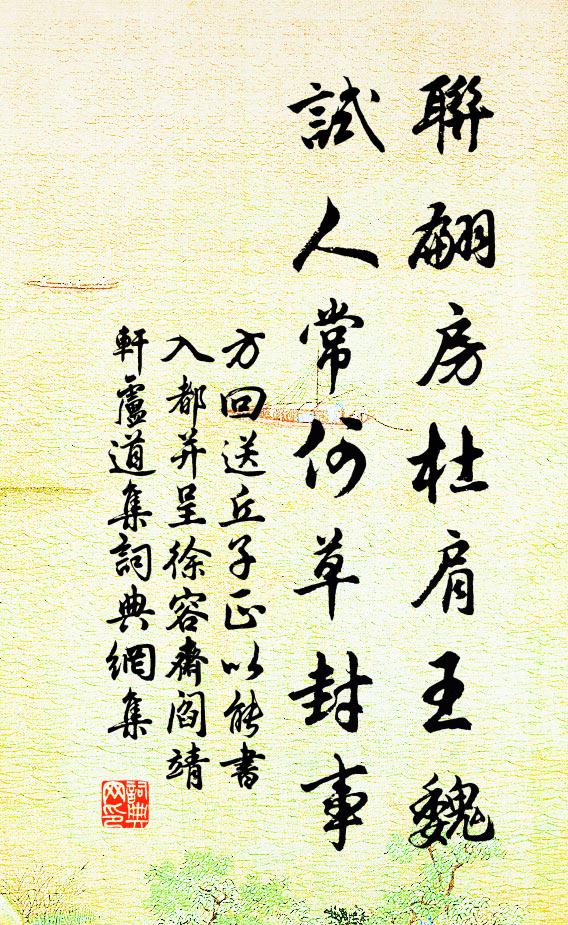 聯翩房杜肩王魏
試人常何草封事
方回送丘子正以能書
入都并呈徐容齋閻靖
軒盧道集詞典網集
詞典网印